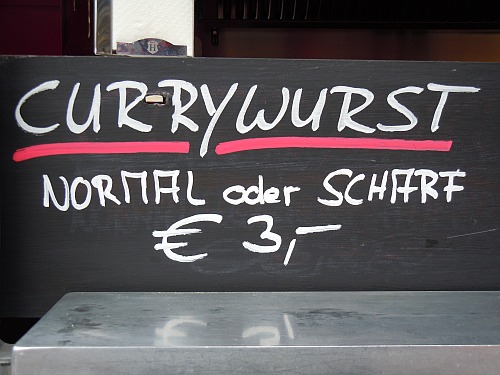 CURRYWURST
NORMAL oder SCHARF
€ 3,-